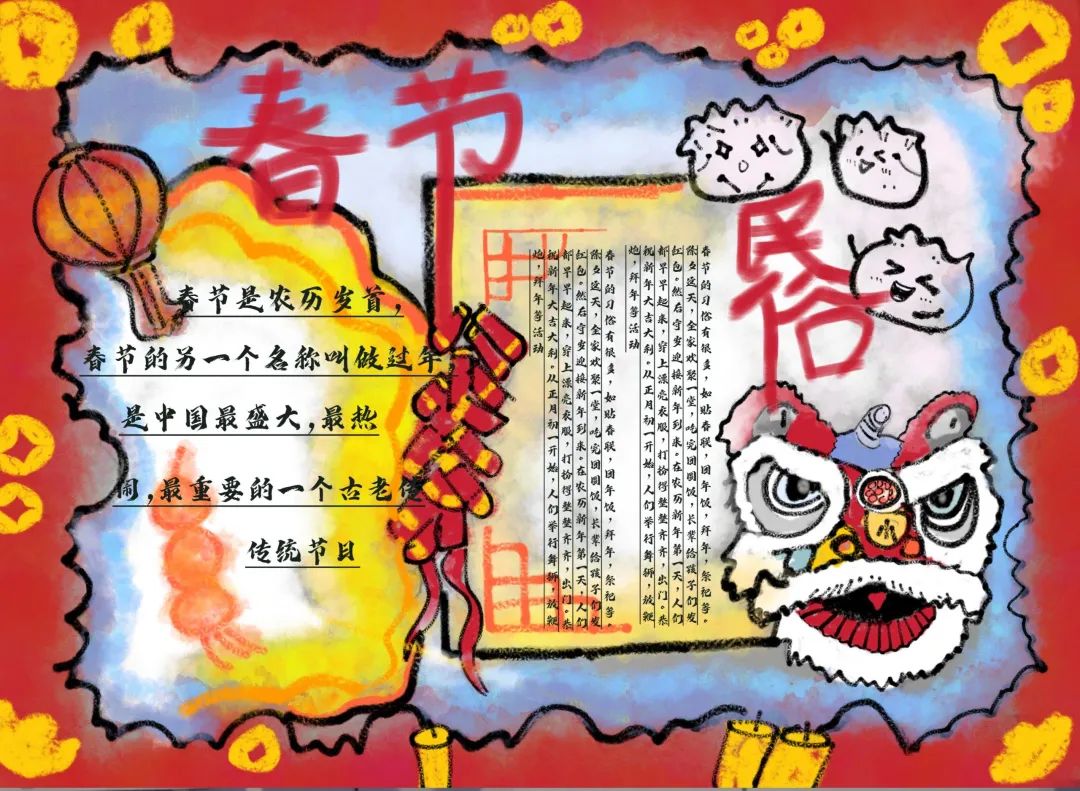 春节
民俗
春节是农历岁首，
春节的另一个名称叫做过年，
是中国最盛大，最热
闹，最重要的一个古老
传统节日
春节的习俗有很多，如贴春联，团年饭，拜年，祭祀等。
除夕这天，全家欢聚一堂，吃完团圆饭，长辈给孩子们发
红包。然后守岁迎接新年到来。在农历新年第一天，人们
都早早起来，穿上漂亮衣服，打扮得整整齐齐，出门。恭
祝新年大吉大利。从正月初一开始，人们举行舞狮，放鞭
炮，拜年等活动
春节的习俗有很多，如贴春联，团年饭，拜年，祭祀等。
除夕这天，全家欢聚一堂，吃完团圆饭，长辈给孩子们发
红包。然后守岁迎接新年到来。在农历新年第一天，人们
都早早起来，穿上漂亮衣服，打扮得整整齐齐，出门。恭
祝新年大吉大利。从正月初一开始，人们举行舞狮，放鞭
炮，拜年等活动